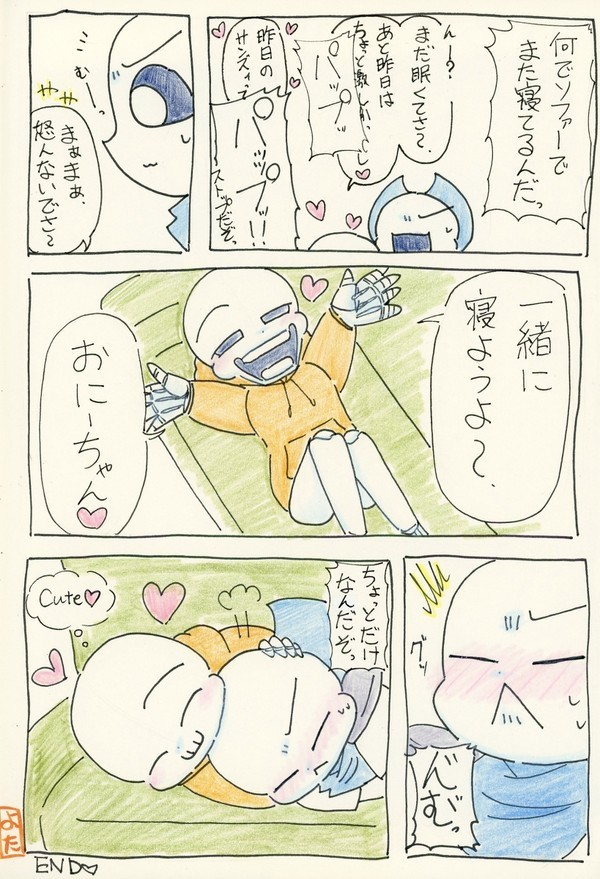 何でソファーで
また寝てるんだっ
んー?
まだ眠くてさ〜
あと昨日は
ちょっと激しかったし
パップ
昨日の
サンズィ
パップッ!!
ストップだぞっ
むーっ
まぁまぁ、
怒んないでさ〜
一緒に
寝ようよ〜
おにーちゃん
グッ
ちょっとだけ
なんだぞっ
Cute
よた
END